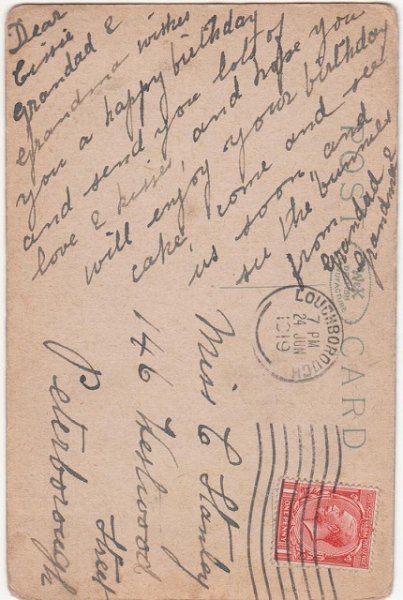 Dear
Cissie
Grandad &
Grandma wishes
you a happy birthday
and send you lots of
love & kisses, and hope you
will enjoy your birthday
cake, come and see
us soon, and
see the bunnies
from
Grandad &
Grandma
POST CARD
LOUGHBOROUGH
7 PM
24 JUN
1919
Miss C Stanley
146 Westwood
Street
Peterborough
ONE PENNY